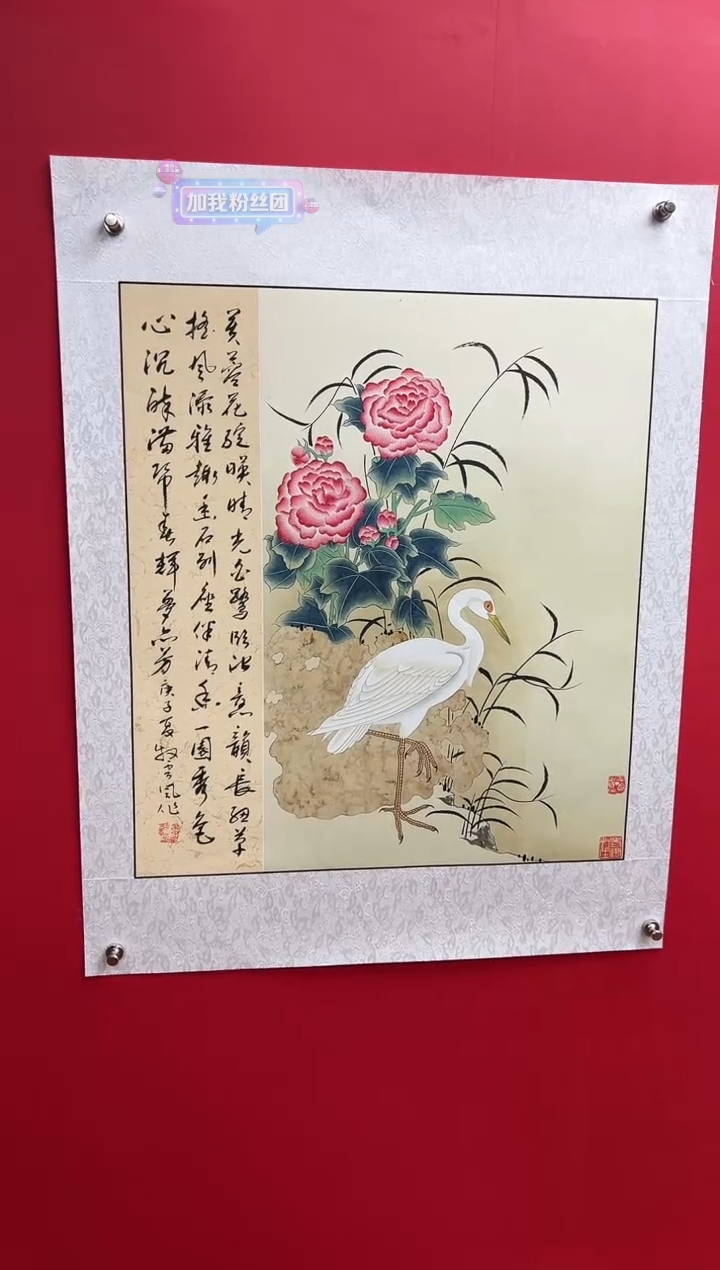 加我粉丝团
芙蓉花绽暎晴光白鹭临池意韻長細草
摇风添雅趣石列座伴清香一園秀色
心沉醉满春輝夢亦芳庚子夏牧作